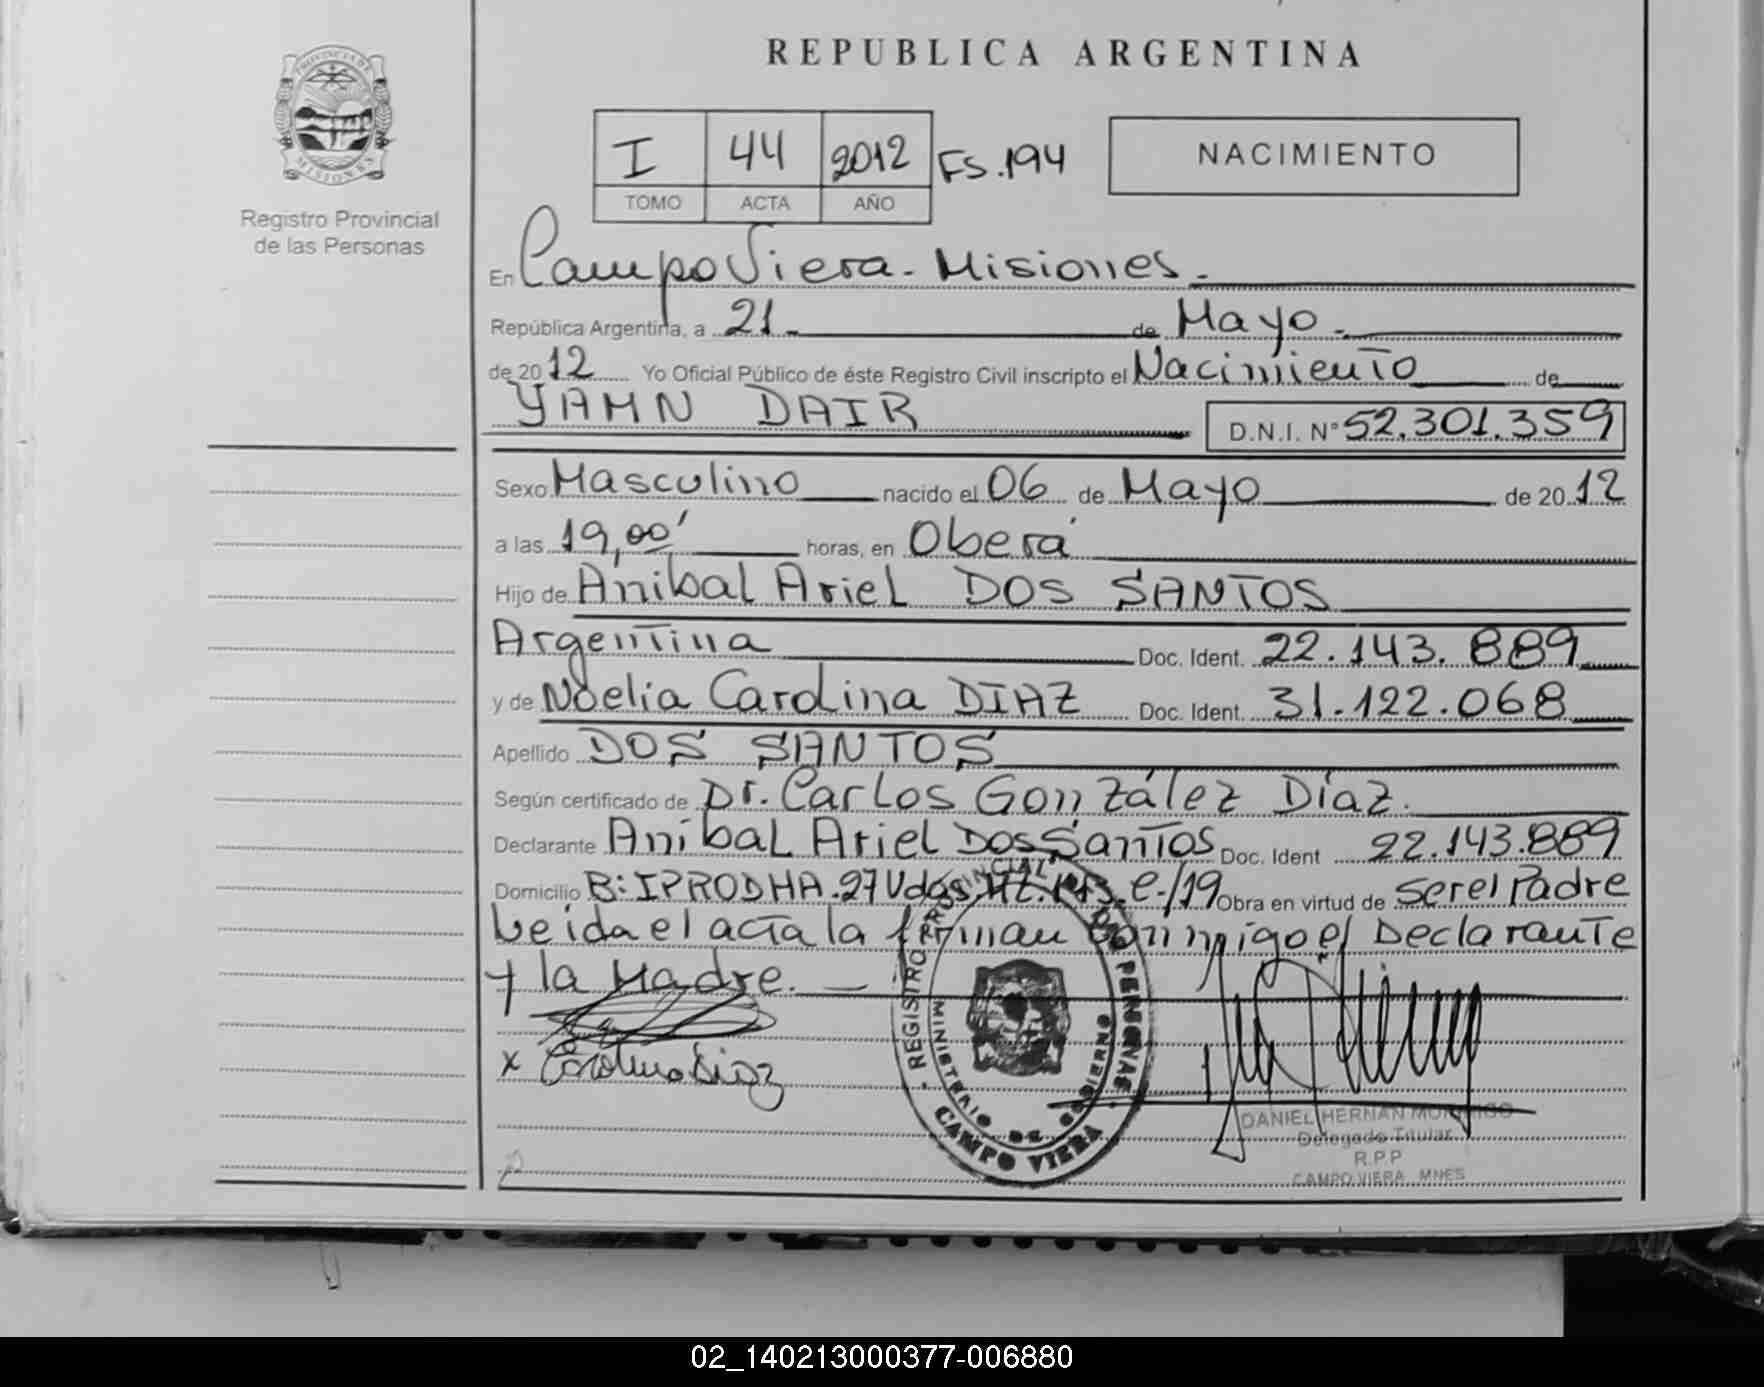 REPUBLICA ARGENTINA
PROVINCIA DE MISIONES
Registro Provincial
de las Personas
I 44 2012 FS.194
TOMO ACTA AÑO
NACIMIENTO
En Campo Viera - Misiones.
República Argentina, a 21 de Mayo
de 2012 Yo Oficial Público de éste Registro Civil inscripto el Nacimiento de
YAMN DAIR D.N.I. Nº 52.301.359
Sexo Masculino nacido el 06 de Mayo de 2012
a las 19,00' horas, en Oberá
Hijo de Anibal Ariel DOS SANTOS
Argentina Doc. Ident. 22.143.889
y de Noelia Carolina DIAZ Doc. Ident. 31.122.068
Apellido DOS SANTOS
Según certificado de Dr. Carlos González Díaz.
Declarante Anibal Ariel Dos Santos Doc. Ident 22.143.889
Domicilio B: IPRODHA. 27 Vdas. Mz. C-/19 Obra en virtud de Ser el Padre
Leida el acta la firman conmigo el Declarante
y la Madre.
x Carolina Diaz
REGISTRO PROVINCIAL DE PERSONAS
MINISTERIO DE GOBIERNO
CAMPO VIERA
DANIEL HERNAN
Delegado Titular
R.P.P
CAMPO VIERA MNES
02_140213000377-006880